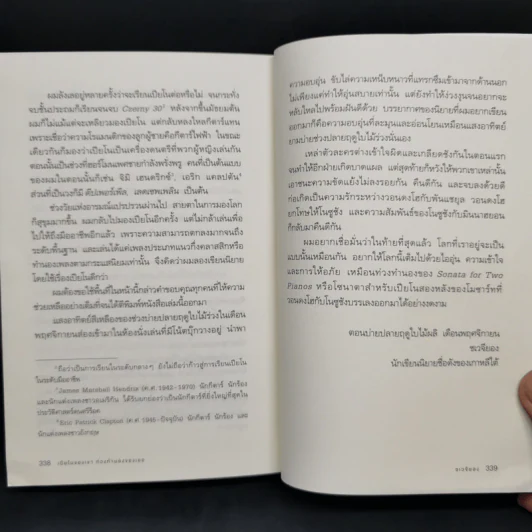 ผมลังเลอยู่หลายครั้งว่าจะเรียนเปียโนต่อหรือไม่ จนกระทั่ง
จบชั้นประถมก็เรียนจนจบ Czerny 30¹ หลังจากขึ้นมัธยมต้น
ผมก็ไม่แม้แต่จะเหลียวมองเปียโน แต่กลับหลงใหลกีตาร์แทน
เพราะเชื่อว่าความโรแมนติกของลูกผู้ชายคือกีตาร์ไฟฟ้า ในขณะ
เดียวกันก็มองว่าเปียโนเป็นเครื่องดนตรีที่พวกผู้หญิงเล่นกัน
ตอนนั้นเป็นช่วงที่ฮอร์โมนเพศชายกำลังพรั่งพรู คนที่เป็นต้นแบบ
ของผมในตอนนั้นก็เช่น จิมี เฮนดริกซ์², เอริก แคลปตัน³
ส่วนที่เป็นวงก็มี ดีปเพอร์เพิล, เลดเซพเพลิน เป็นต้น
ช่วงวัยแห่งอารมณ์แปรปรวนผ่านไป สายตาในการมองโลก
ก็สุขุมมากขึ้น ผมกลับไปมองเปียโนอีกครั้ง แต่ไม่กล้าเล่นเพื่อ
ไปให้ถึงมืออาชีพอีกแล้ว เพราะความสามารถตกลงมากจนถึง
ระดับพื้นฐาน และเล่นได้แต่เพลงประเภทแนวกึ่งคลาสสิกหรือ
ทำนองเพลงตามกระแสนิยมเท่านั้น จึงคิดว่าผมลองเขียนนิยาย
โดยใช้เรื่องเปียโนดีกว่า
ผมต้องขอใช้พื้นที่ในหน้านี้กล่าวคำขอบคุณทุกคนที่ให้ความ
ช่วยเหลืออย่างเต็มที่จนได้ตีพิมพ์หนังสือเล่มนี้ออกมา
แสงอาทิตย์สีเหลืองของช่วงบ่ายปลายฤดูใบไม้ร่วงในเดือน
พฤศจิกายนส่องเข้ามาในห้องนั่งเล่นที่มีโน้ตบุ๊กวางอยู่ นำพา
¹ ถือว่าเป็นการเรียนในระดับกลางๆ ยังไม่ถือว่าก้าวสู่การเรียนเปียโน
ในระดับมืออาชีพ
² James Marshall Hendrix (ค.ศ.1942-1970) นักกีตาร์ นักร้อง
และนักแต่งเพลงชาวอเมริกัน ได้รับยกย่องว่าเป็นนักกีตาร์ที่ยิ่งใหญ่ที่สุดใน
ประวัติศาสตร์ดนตรีร็อค
³ Eric Patrick Clapton (ค.ศ.1945-ปัจจุบัน) นักกีตาร์ นักร้อง และ
นักแต่งเพลงชาวอังกฤษ
338
ความอบอุ่น ขับไล่ความเหน็บหนาวที่แทรกซึมเข้ามาจากด้านนอก
ไม่เพียงแค่ทำให้อุ่นสบายเท่านั้น แต่ยังทำให้ง่วงงุนจนอยากจะ
หลับใหลไปพร้อมฝันดีด้วย บรรยากาศของนิยายที่ผมอยากเขียน
ออกมาก็คือความอบอุ่นที่ละมุนและอ่อนโยนเหมือนแสงอาทิตย์
ยามบ่ายช่วงปลายฤดูใบไม้ร่วงนั่นเอง
เหล่าตัวละครต่างเข้าใจผิดและเกลียดชังกันในตอนแรก
จนทำให้อีกฝ่ายเกิดบาดแผล แต่สุดท้ายก็หวังให้พวกเขาเหล่านั้น
เอาชนะความขัดแย้งไม่ลงรอยกัน คืนดีกัน และจบลงด้วยดี
ก่อเกิดเป็นความรักระหว่างวอนดงโฮกับพันแชยุล วอนดงโฮ
ยกโทษให้โนชูชัง และความสัมพันธ์ของโนชูชังกับมินนาฮยอน
ก็กลับมาคืนดีกัน
ผมอยากเชื่อมั่นว่าในท้ายที่สุดแล้ว โลกที่เราอยู่จะเป็น
แบบนั้นเหมือนกัน อยากให้โลกนี้เต็มไปด้วยไออุ่น ความเข้าใจ
และการให้อภัย เหมือนท่วงทำนองของ Sonata for Two
Pianos หรือโซนาตาสำหรับเปียโนสองหลังของโมซาร์ทที่
วอนดงโฮกับโนชูชังบรรเลงออกมาได้อย่างงดงาม
ตอนบ่ายปลายฤดูใบไม้ผลิ เดือนพฤศจิกายน
ชเวจียอง
นักเขียนนิยายชื่อดังของเกาหลีใต้
ชเวจียอง 339